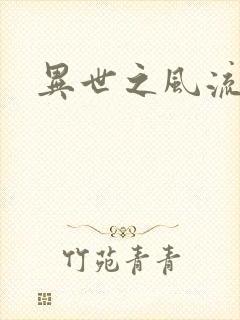 異世之風流
竹苑青青